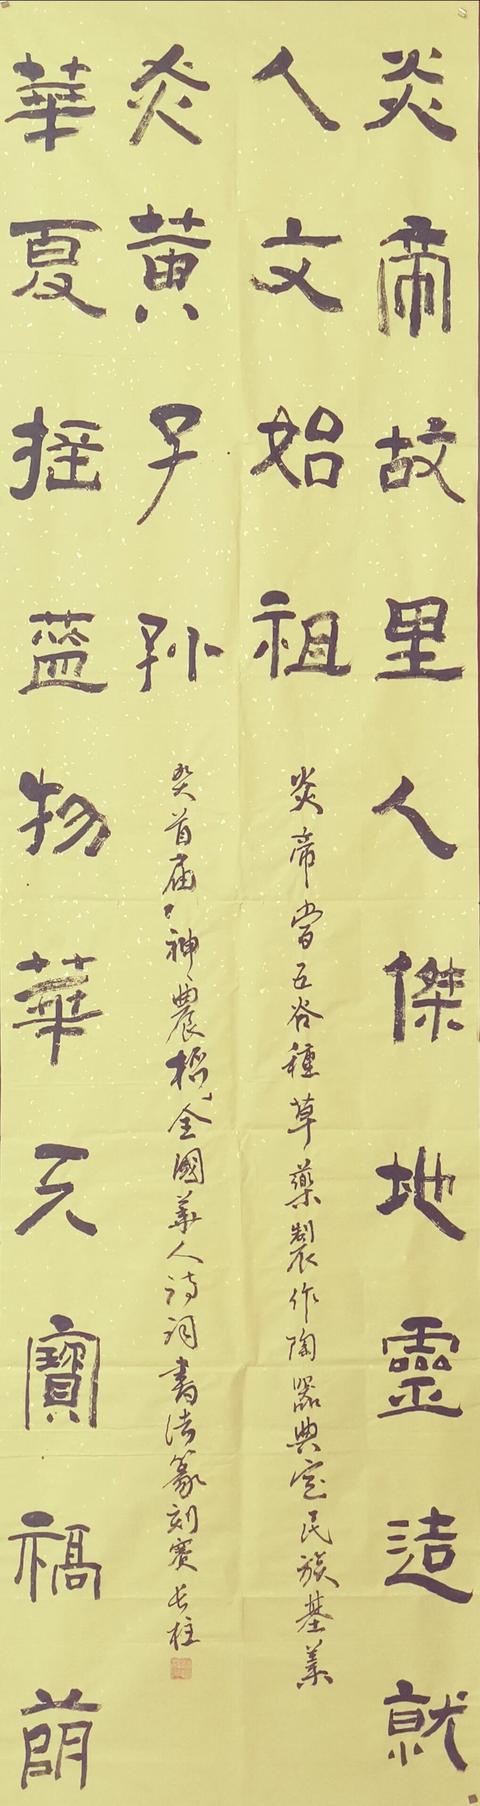 炎帝故里人傑地靈造就
人文始祖
炎帝嘗五谷種草藥製作陶器典定民族基業
華夏摇藍物華天寶福蔭
炎黄子孫
首届"神農杯"全國華人詩詞書法篆刻賽长柱